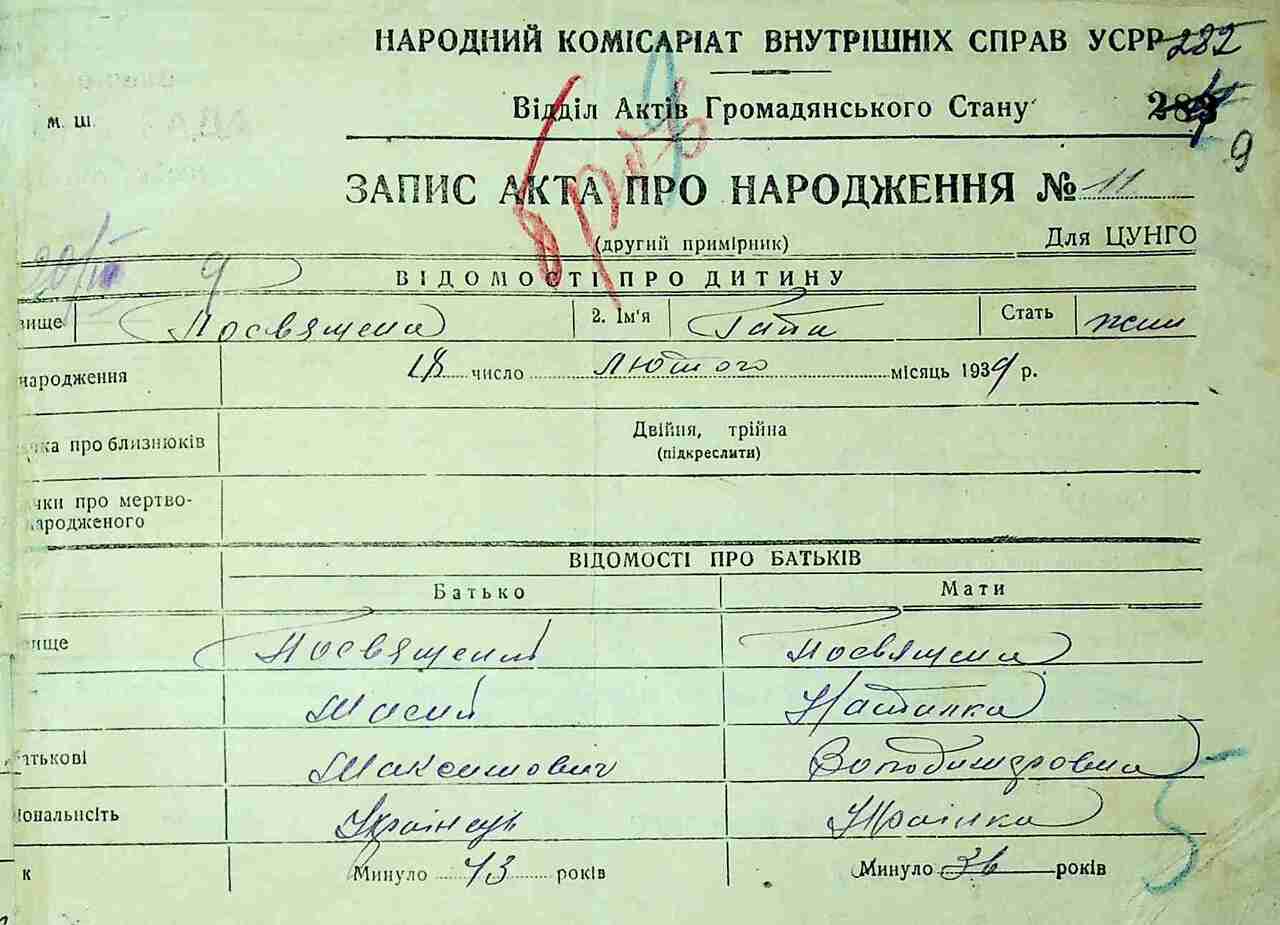 НАРОДНИЙ КОМІСАРІАТ ВНУТРІШНІХ СПРАВ УСРР 282
м. ш.
Відділ Актів Громадянського Стану
9
ЗАПИС АКТА ПРО НАРОДЖЕННЯ № 11
(другий примірник) Для ЦУНГО
20/III 9
ВІДОМОСТІ ПРО ДИТИНУ
вище Посвящена 2. Ім'я Гапа Стать жін
народження 18 число лютого місяць 1939 р.
чка про близнюків Двійня, трійна
(підкреслити)
чки про мертво-
народженого
ВІДОМОСТІ ПРО БАТЬКІВ
Батько Мати
вище Посвящений Посвящена
Мосий Наталка
батькові Максимович Володимировна
іональність Українець Українка
к Минуло 43 років Минуло 36 років